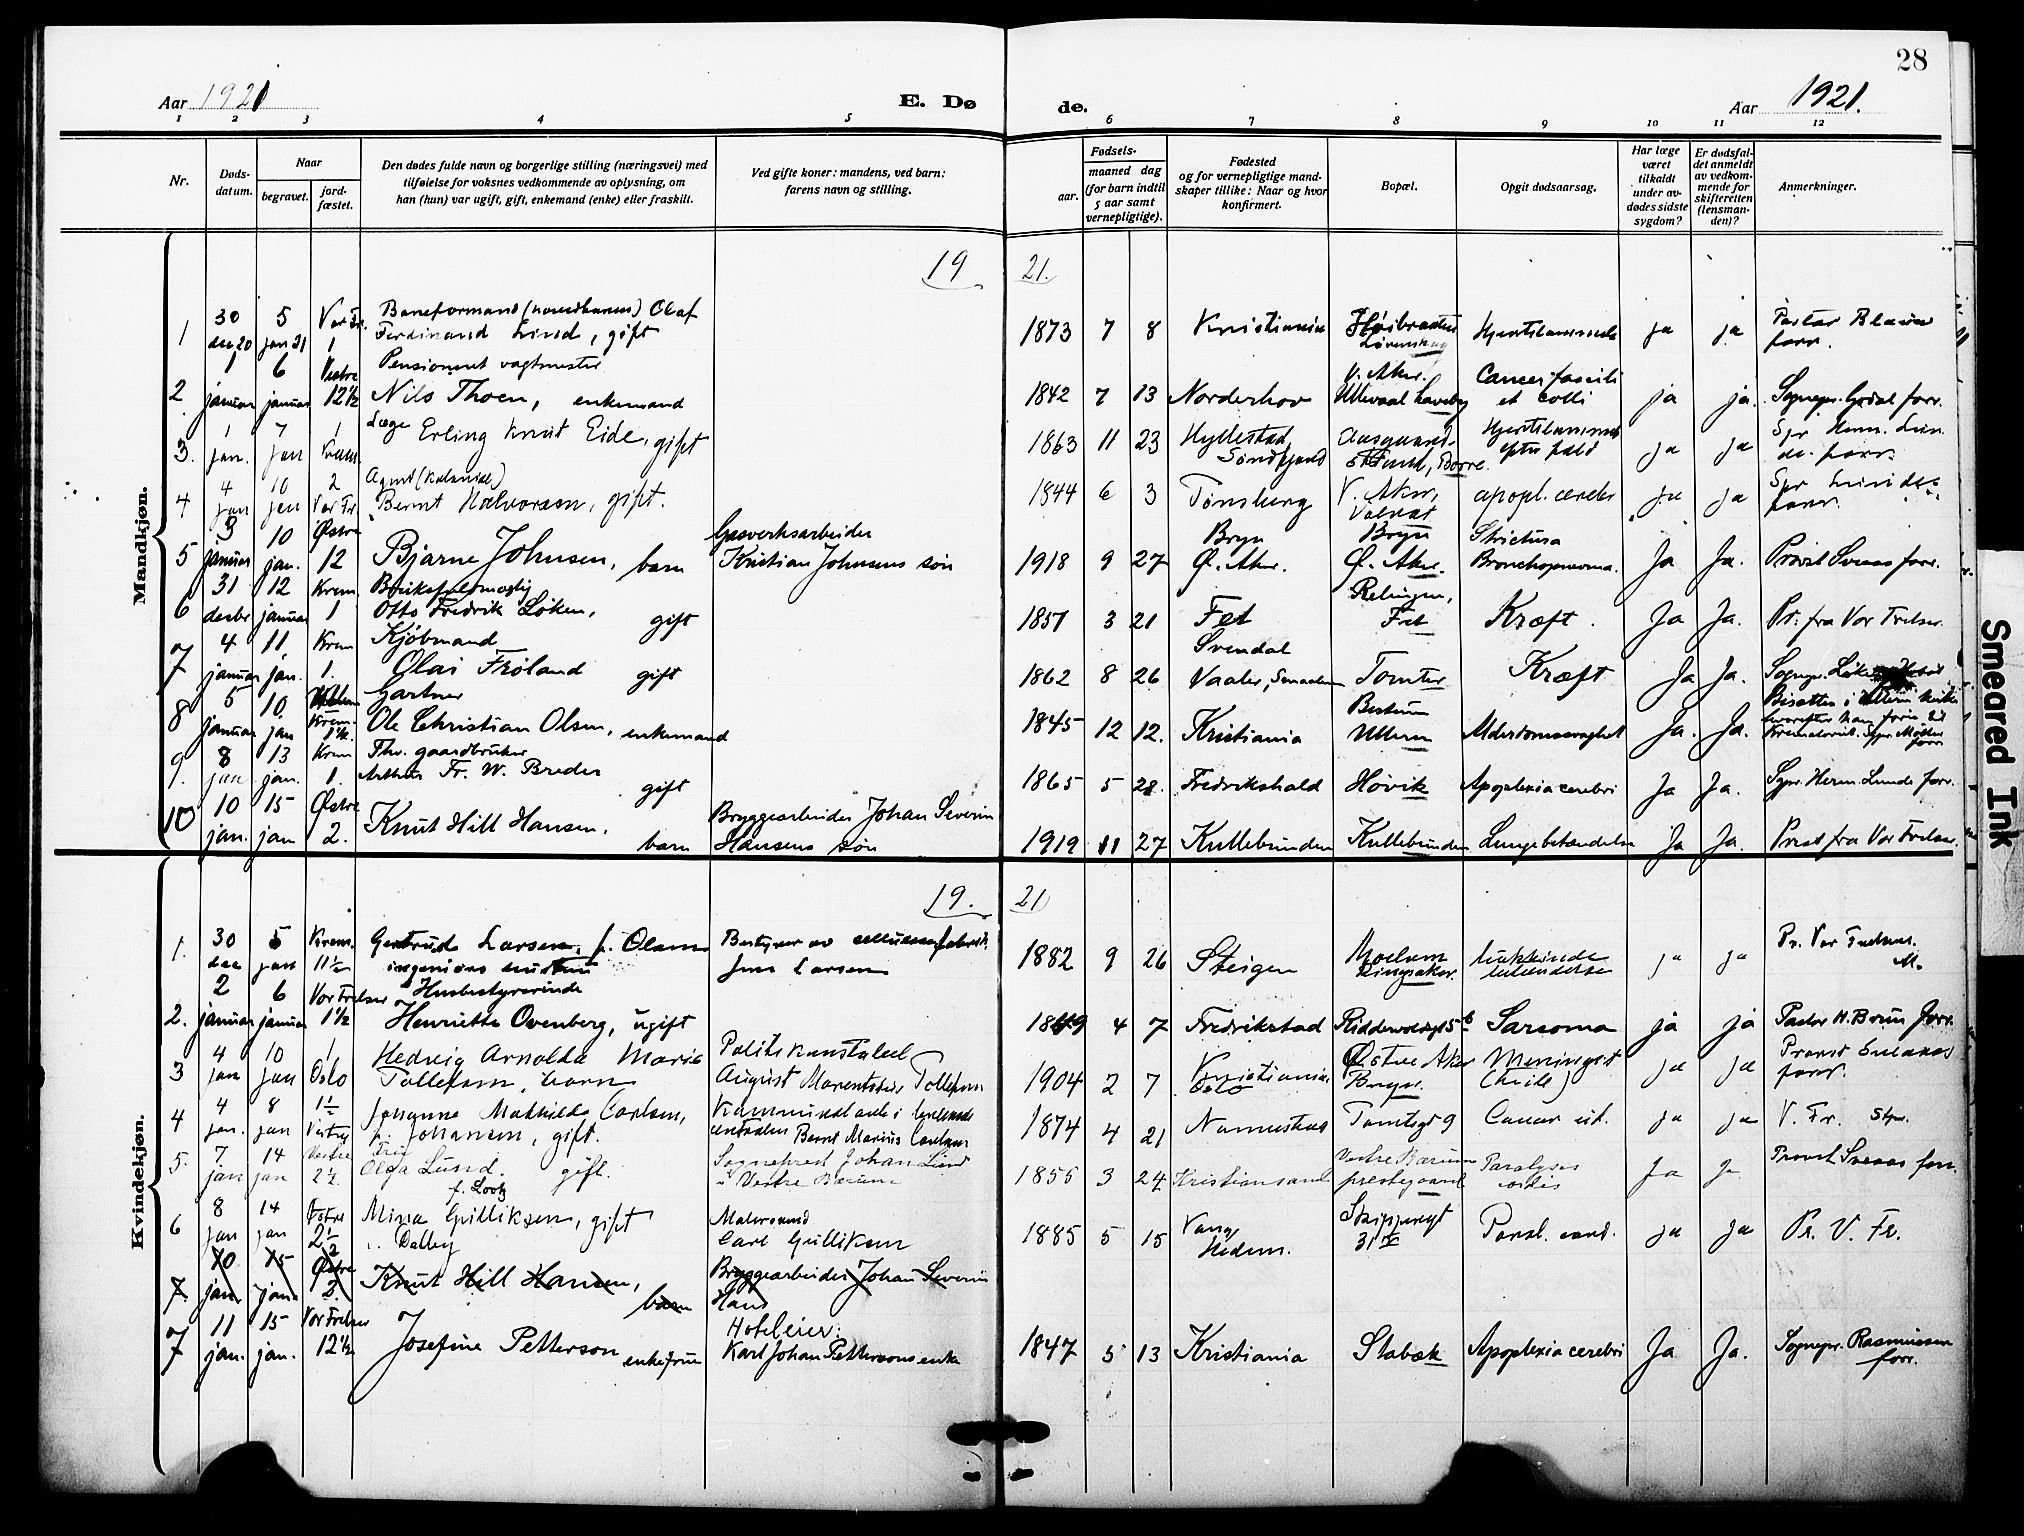 28
Aar 1921
E. Dø
de.
Aar 1921.
1 2 3 4 5 6 7 8 9 10 11 12
Nr.
Døds-
datum.
Naar
begravet.
jord-
fæstet.
Den dødes fulde navn og borgerlige stilling (næringsvei) med
tilføielse for voksnes vedkommende av oplysning, om
han (hun) var ugift, gift, enkemand (enke) eller fraskilt.
Ved gifte koner: mandens, ved barn:
farens navn og stilling.
Fødsels-
aar.
maaned dag
(for barn indtil
5 aar samt
vernepligtige).
Fødested
og for vernepligtige mand-
skaper tillike: Naar og hvor
konfirmert.
Bopæl.
Opgit dødsaarsag.
Har læge
været
tilkaldt
under av-
dødes sidste
sygdom?
Er dødsfal-
det anmeldt
av vedkom-
mende for
skifteretten
(lensman-
den)?
Anmerkninger.
Mandkjøn.
19 21.
1 30 dec 20 5 jan 21 Vor Fr. 1 Baneformand (hovedbanen) Olaf
Ferdinand Lind, gift 1873 7 8 Kristiania Høibraaten Lørenskog Hjertelammelse ja ja Pastor Blauw forr.
2. 1 januar 6 januar Vestre 12½ Pensioneret vagtmester
Nils Thoen, enkemand 1842 7 13 Norderhov V. Aker. Ullevaal haveby Cancer faciei et colli ja ja. Sognepr. Gjødal forr.
3. 1 jan. 7 jan 1 Krem. Læge Erling Knut Eide, gift 1863 11 23 Hyllestad Søndfjord Aasgaard- strand, Borre. Hjertelammelse efter fald ja ja Spr Herm. Lunde forr.
4 4 jan 10 jan 2 Vor Fr. Agent (kolonial)
Bernt Halvorsen, gift. 1844 6 3 Tønsberg V. Aker, Volvat apopl. cerebr ja ja Spr Lindes forr.
5 3 januar 10 jan. Østre 12 Bjarne Johnsen, barn Gasverksarbeider
Kristian Johnsens søn 1918 9 27 Bryn Ø. Aker. Bryn Ø. Aker. Strictura Bronchopneumo. Ja Ja. Provst Sveaas forr.
6 31 desbr 12 januar Krem 1 Otto Fredrik Løken, gift 1857 3 21 Fet Relingen, Fet Kræft. Ja Ja. Pr. fra Vor Frelser.
7 4 januar 11. jan. Krem 1. Kjøbmand
Olai Frøland gift 1862 8 26 Svendal Vaaler, Smaalen Tomter Kræft Ja Ja. Sognepr. Løken
8 5 januar 10 jan Ullern Krem. 1½ Gartner
Ole Christian Olsen, enkemand 1845 12 12. Kristiania Bestum Ullern Alderdomssvaghet Ja. Ja. Bisattes i Ullern kirke
hvorefter han føres til
Krematoriet. Spr Møller forr
9. 8 jan 13 jan. Krem 1. Fhv. gaardbruker
Arthur Fr. W. Breder gift 1865 5 28. Fredrikshald Høvik Apoplexia cerebri Ja Ja. Spr. Herm. Lunde forr.
10 10 jan. 15 jan Østre 2. Knut Hill Hansen, barn Bryggearbeider Johan Severin
Hansens søn 1919 11 27 Kullebunden Kullebunden Lungebetændelse Ja Ja. Prest fra Vor Frelser.
Kvindekjøn.
19. 21
1. 30 dec 5 jan Krem. 11½ Gertrude Larsen, f. Olsen
ingeniørs hustru Bestyrer av cellulosefabrik.
Jens Larsen 1882 9 26 Steigen Moelven Ringsaker. ja ja Pr. Vor Frelsers. M.
2. 2 januar 6 januar Vor Frelser 1½ Husbestyrerinde
Henriette Ovenberg, ugift 1849 4 7 Fredrikstad Riddervoldsgt 5 b Sarcoma ja ja Pastor H. Brun forr.
3 4 jan 10 jan 1 Oslo Hedvig Arnolda Marie
Tollefsen, barn Politikonstabel
August Marentsius Tollefsen 1904 2 7 Kristiania Oslo Østre Aker Bryn. Meningit ja ja Provst Sveaas forr.
4 4 jan. 8 jan 1½ Vestre Johanne Mathilde Carlsen,
f. Johansen, gift. Bernt Marius Carlsen 1874 4 21 Namsos Tomtegt 9 Cancer ut. ja ja V. Fr. Spr.
5. 7 jan 14 jan Vestre 2½ Fru
Olga Lund. gift.
f. Lootz Sogneprest Johan Lund
i Vestre Bærum 1855 3 24 Kristiansand Vestre Bærum prestegaard Paralysis cordis Ja Ja Provst Sveaas forr.
6 8 jan 14 jan Vestre 2½ Mina Gulliksen, gift
Dalby Malersvend
Carl Gulliksen 1885 5 15 Vang Hedem. Skippergt 31 Paral. cord. ja ja Pr. V. Fr.
7. 10 jan. 15 jan. Østre 2. Knut Hill Hansen, barn Bryggearbeider Johan Severin
Hans
7 11 jan. 15 jan. Vor Frelser 12½ Josefine Petterson enkefrue Hoteleier:
Karl Johan Pettersons enke 1847 5 13 Kristiania Stabæk Apoplexia cerebri Ja Ja. Sognepr. Rasmussen forr.
Smeared Ink